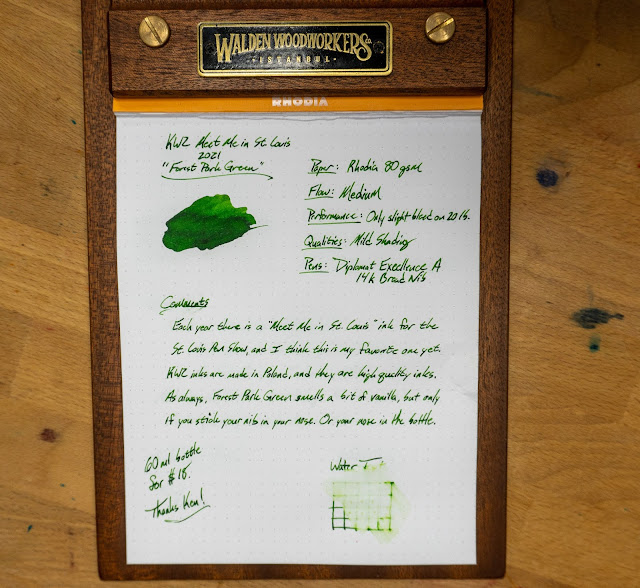 WALDEN WOODWORKERS Co.
• ISTANBUL •
RHODIA
KWZ Meet Me in St. Louis
2021
"Forest Park Green"
Paper: Rhodia 80 gsm
Flow: Medium
Performance: Only slight bleed on 20 lb.
Qualities: Mild Shading
Pens: Diplomat Excellence A
14k Broad Nib
Comments
Each year there is a "Meet Me in St. Louis" ink for the
St. Louis Pen Show, and I think this is my favorite one yet.
KWZ inks are made in Poland, and they are high quality inks.
As always, Forest Park Green smells a bit of vanilla, but only
if you stick your nib in your nose. Or your nose in the bottle.
60 ml bottle
for $18.
Thanks Ken!
Water